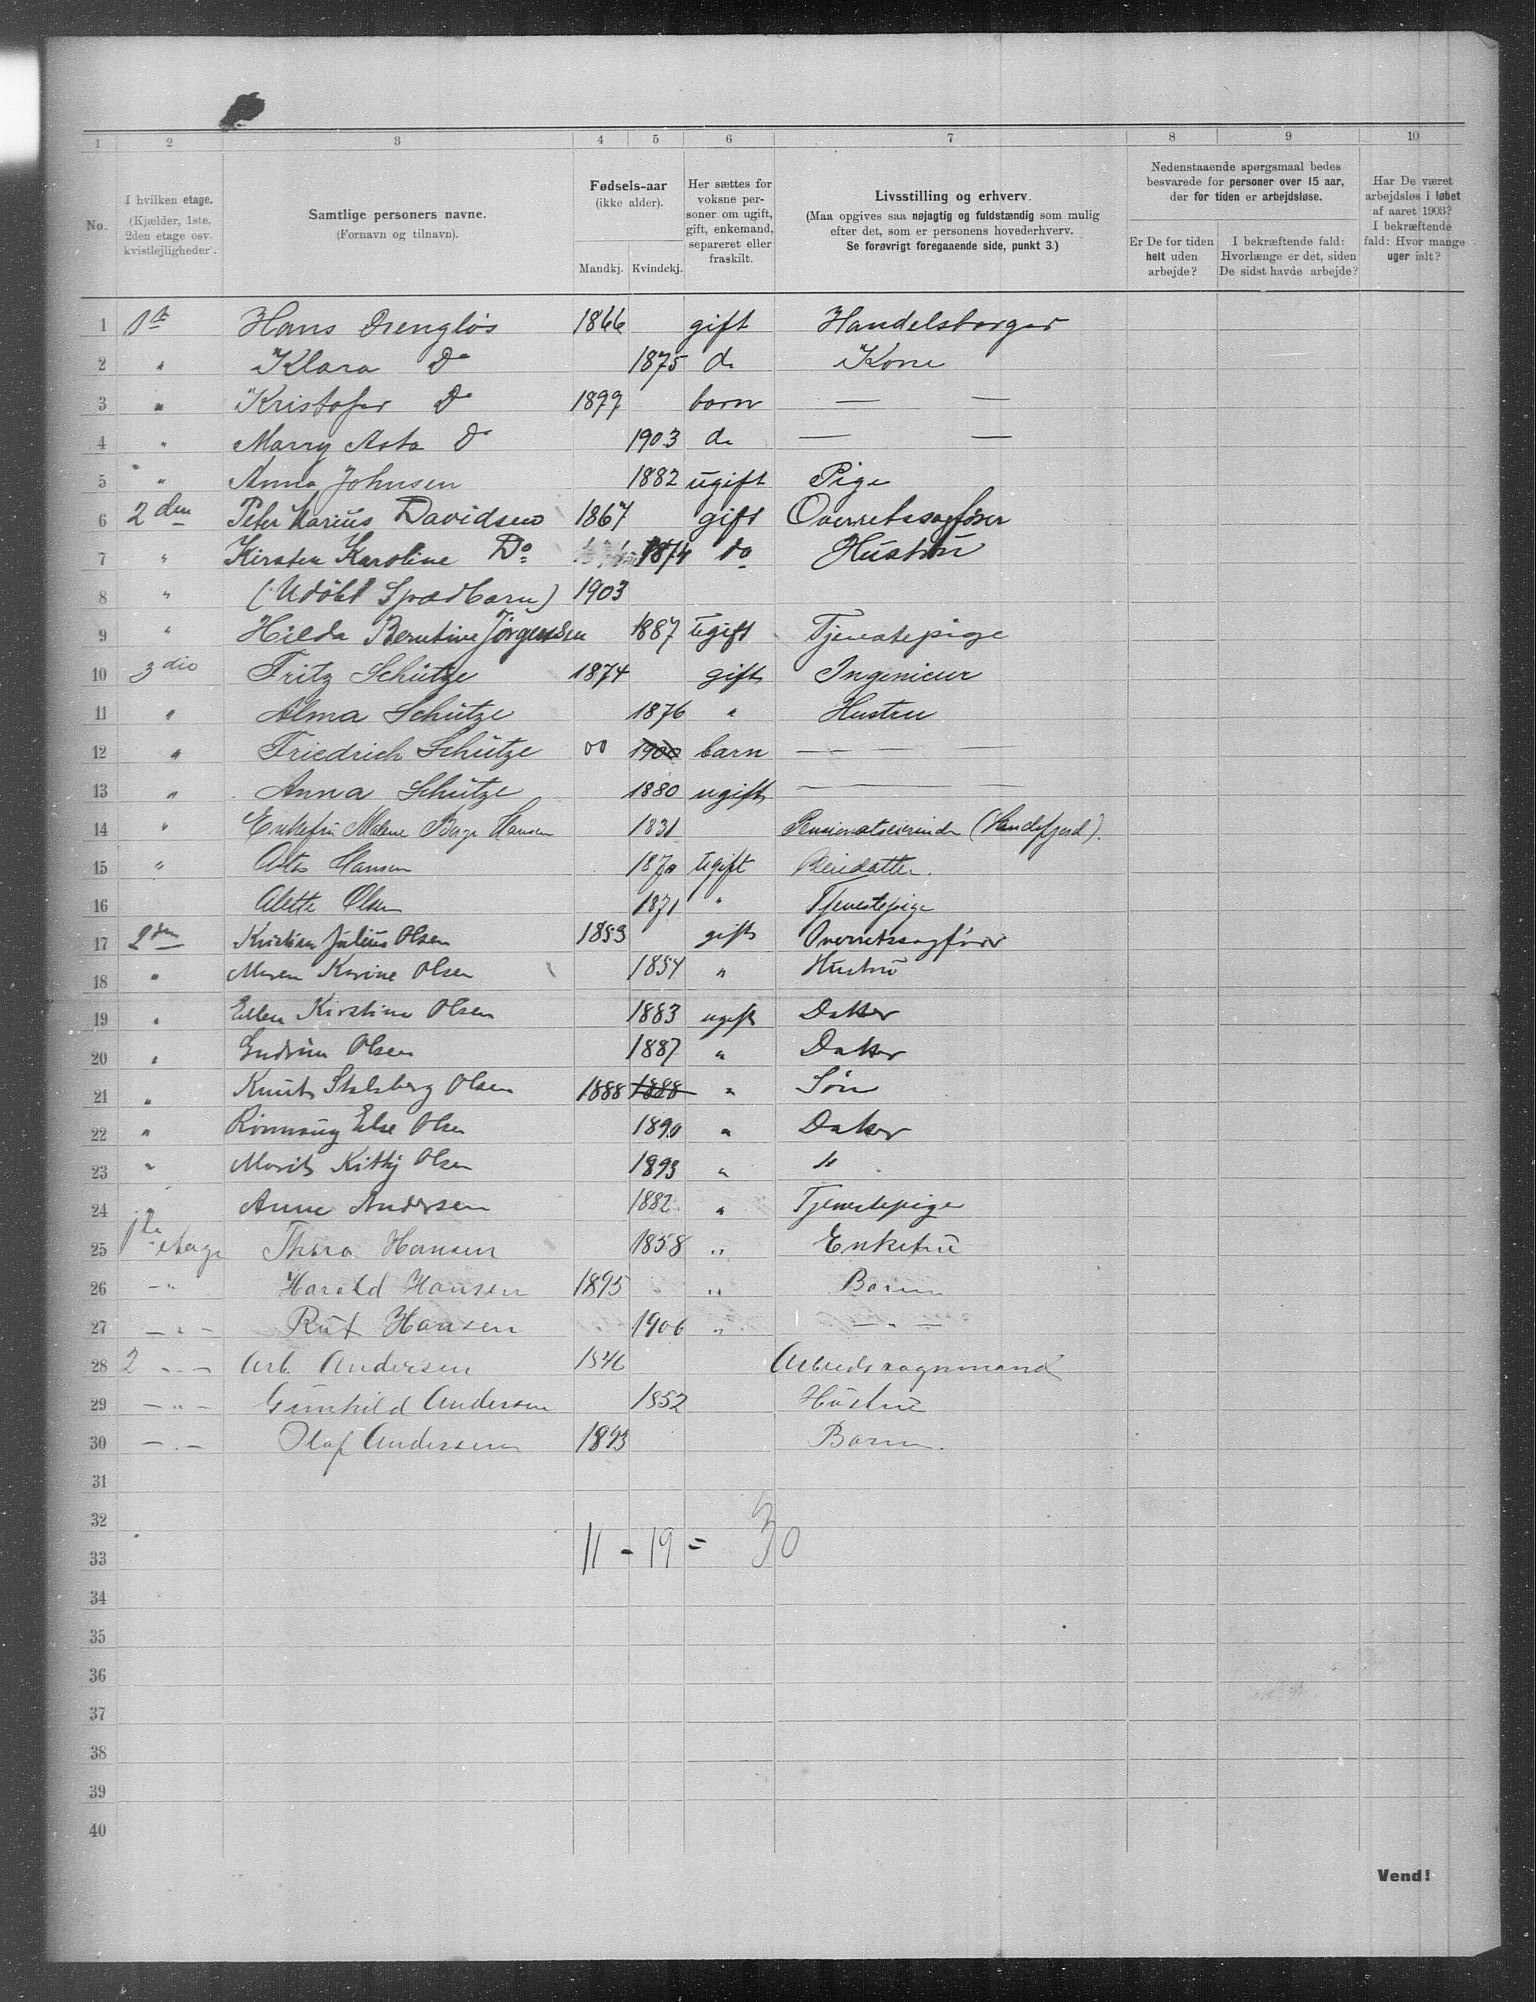 1 2 3 4 5 6 7 8 9 10
No.
I hvilken etage.
(Kjælder, 1ste,
2den etage osv.
kvistlejligheder).
Samtlige personers navne.
(Fornavn og tilnavn).
Fødsels-aar
(ikke alder).
Mandkj. Kvindekj.
Her sættes for
voksne per-
soner om ugift,
gift, enkemand,
separeret eller
fraskilt.
Livsstilling og erhverv.
(Maa opgives saa nøjagtig og fuldstændig som mulig
efter det, som er personens hovederhverv.
Se forøvrigt foregaaende side, punkt 3.)
Nedenstaaende spørgsmaal bedes
besvarede for personer over 15 aar,
der for tiden er arbejdsløse.
Er De for tiden
helt uden
arbejde?
I bekræftende fald:
Hvorlænge er det, siden
De sidst havde arbejde?
Har De været
arbejdsløs i løbet
af aaret 1903?
I bekræftende
fald: Hvor mange
uger ialt?
1 Hans 1866 gift Handelsborger
2 " Klara Do 1875 do Kone
3 " Kristofer Do 1899 barn — —
4 " Marry Asta Do 1903 do — —
5 " Anna Johnsen 1882 ugift Pige
6 2den Peter Marius Davidsen 1867 gift Overretssagfører
7 " Kirsten Karoline Do 1874 do Hustru
8 " (Udøbt Spædbarn) 1903
9 " Hilda Berntine Jørgensen 1887 ugift Tjenestepige
10 3die Fritz Schütze 1874 gift Ingenieur
11 " Alma Schütze 1876 " Hustru
12 " Friedrich Schütze 00 1900 barn — — —
13 " Anna Schütze 1880 ugift — —
14 " Enkefru Malene Hansen 1831 Pensionatseierinde (Sandefjord).
15 " Asta Hansen 1870 ugift
16 Alette Olsen 1871 " Tjenestepige
17 2den Kristian Julius Olsen 1853 gift Overretssagfører
18 " Maren Karine Olsen 1854 " Hustru
19 " Ellen Kirstine Olsen 1883 ugift Datter
20 " Gudrun Olsen 1887 " Datter
21 " Knut Stalsberg Olsen 1888 1888 " Søn
22 " Rønnaug Else Olsen 1890 " Datter
23 " Marit Kitty Olsen 1893 " "
24 " Anne Andersen 1882 " Tjenestepige
25 1ste etage Thora Hansen 1858 " Enkefru
26 — " Harald Hansen 1895 " Barn
27 — " — Rut Hansen 1900 " — " —
28 2 — " — Arb. Andersen 1846 Arbeidsvognmand
29 — " — Gunhild Andersen 1852 Hustru
30 — " — Olaf Andersen 1893 Barn.
31
32
33 11 - 19 = 30
34
35
36
37
38
39
40
Vend!